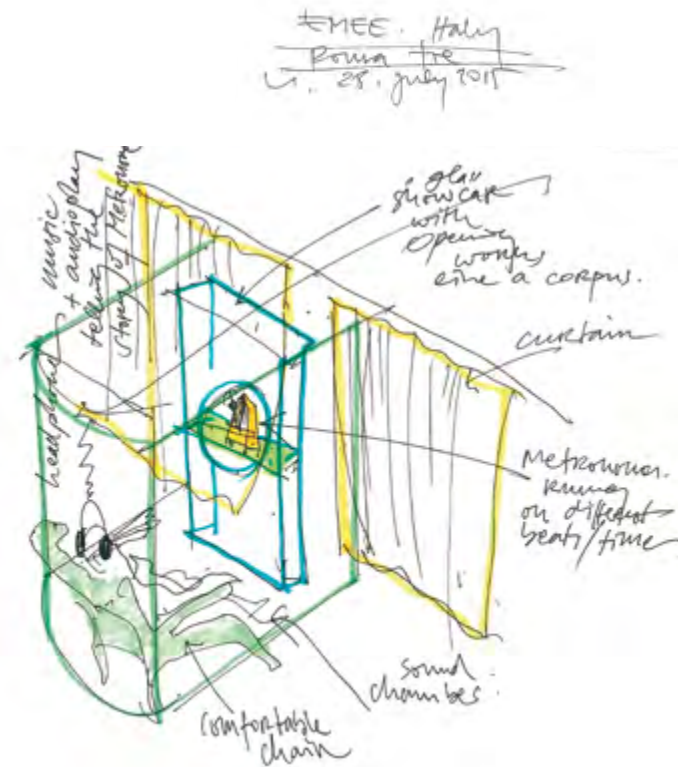 EMEE. Italy
Roma Tre
28. july 2015
headphones music
+ audioplay
telling the
story of Metronom
glass
showcase
with
opening
works
like a corpus.
curtain
Metronomes.
running
on different
beats/time
sound
chamber.
comfortable
chair